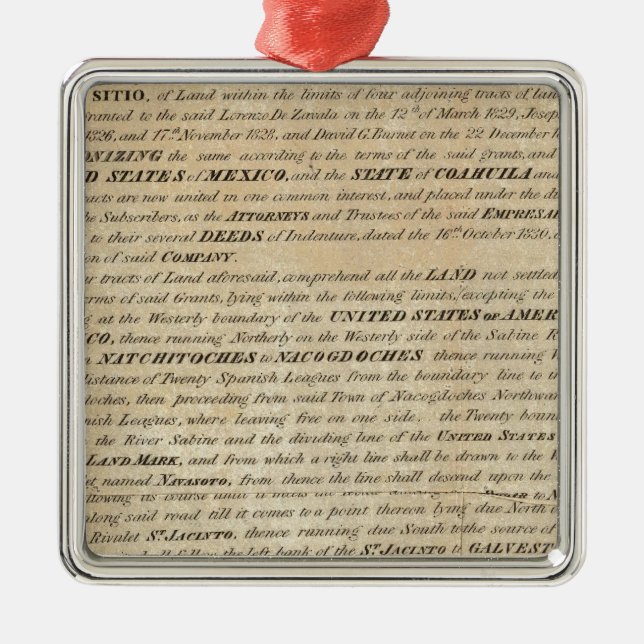 SITIO, of Land within the limits of four adjoining tracts of lan
ranted to the said Lorenzo De Zavala on the 12th of March 1829, Joseph
1826, and 17th November 1828, and David G. Burnet on the 22 December 1
ONIZING the same according to the terms of the said grants, and
D STATES of MEXICO, and the STATE of COAHUILA and
racts are now united in one common interest, and placed under the di
he Subscribers, as the ATTORNEYS and Trustees of the said EMPRESAR
to their several DEEDS of Indenture, dated the 16th October 1830,
on of said COMPANY.
ur tracts of Land aforesaid, comprehend all the LAND not settled
erms of said Grants, lying within the following limits, excepting the
g at the Westerly boundary of the UNITED STATES OF AMER
ICO, thence running Northerly on the Westerly side of the Sabine R
m NATCHITOCHES to NACOGDOCHES thence running W
distance of Twenty Spanish Leagues from the boundary line to th
doches, then preceeding from said Town of Nacogdoches Northwar
nish Leagues, where leaving free on one side, the Twenty boun
the River Sabine and the dividing line of the UNITED STATES
LAND MARK, and from which a right line shall be drawn to the W
let named NAVASOTO, from thence the line shall descend upon the
llowing its course until it meets the to N
along said road till it comes to a point thereon lying due North o
Rivulet ST. JACINTO, thence running due South to the source of
the left bank of the ST. JACINTO to GALVEST